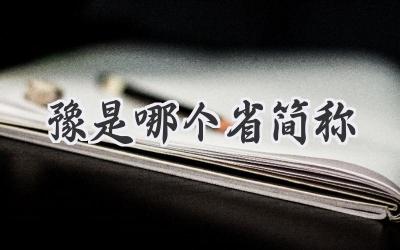 豫是哪个省简称